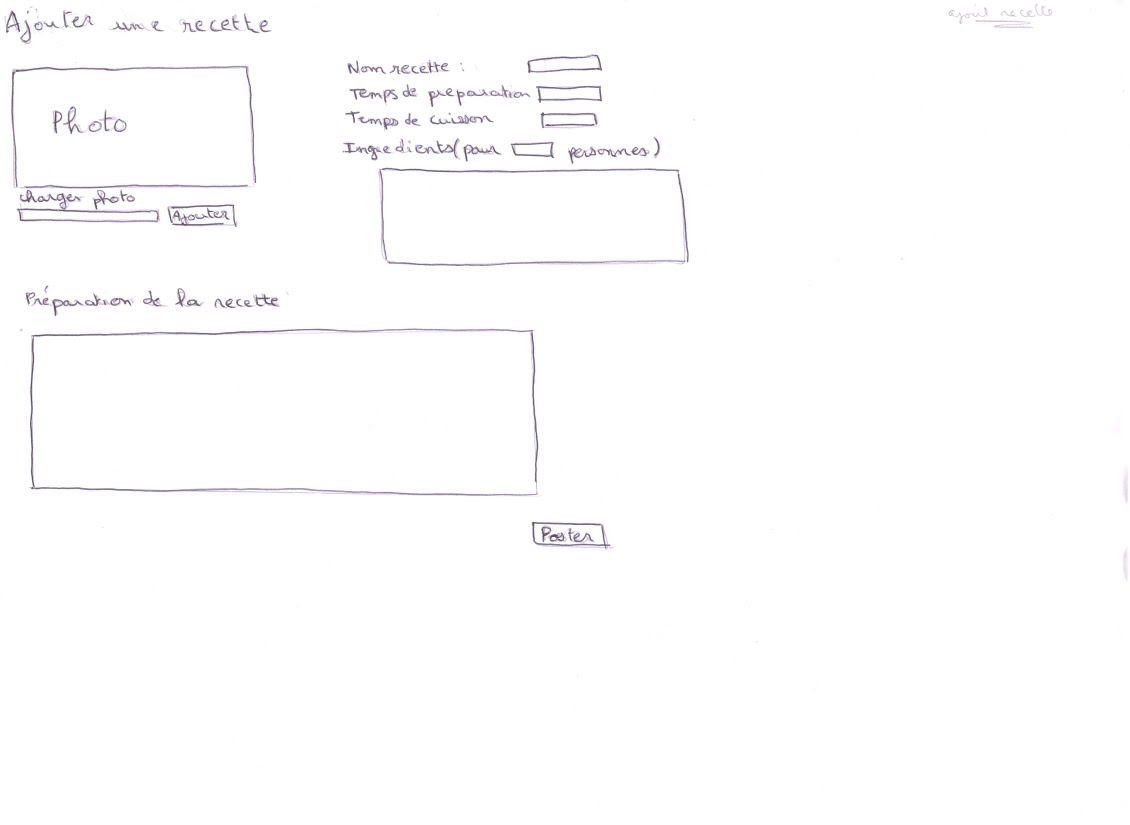 Ajouter une recette
ajout recette
Photo
charger photo
Ajouter
Nom recette :
Temps de préparation
Temps de cuisson
Ingredients (pour personnes)
Préparation de la recette
Poster